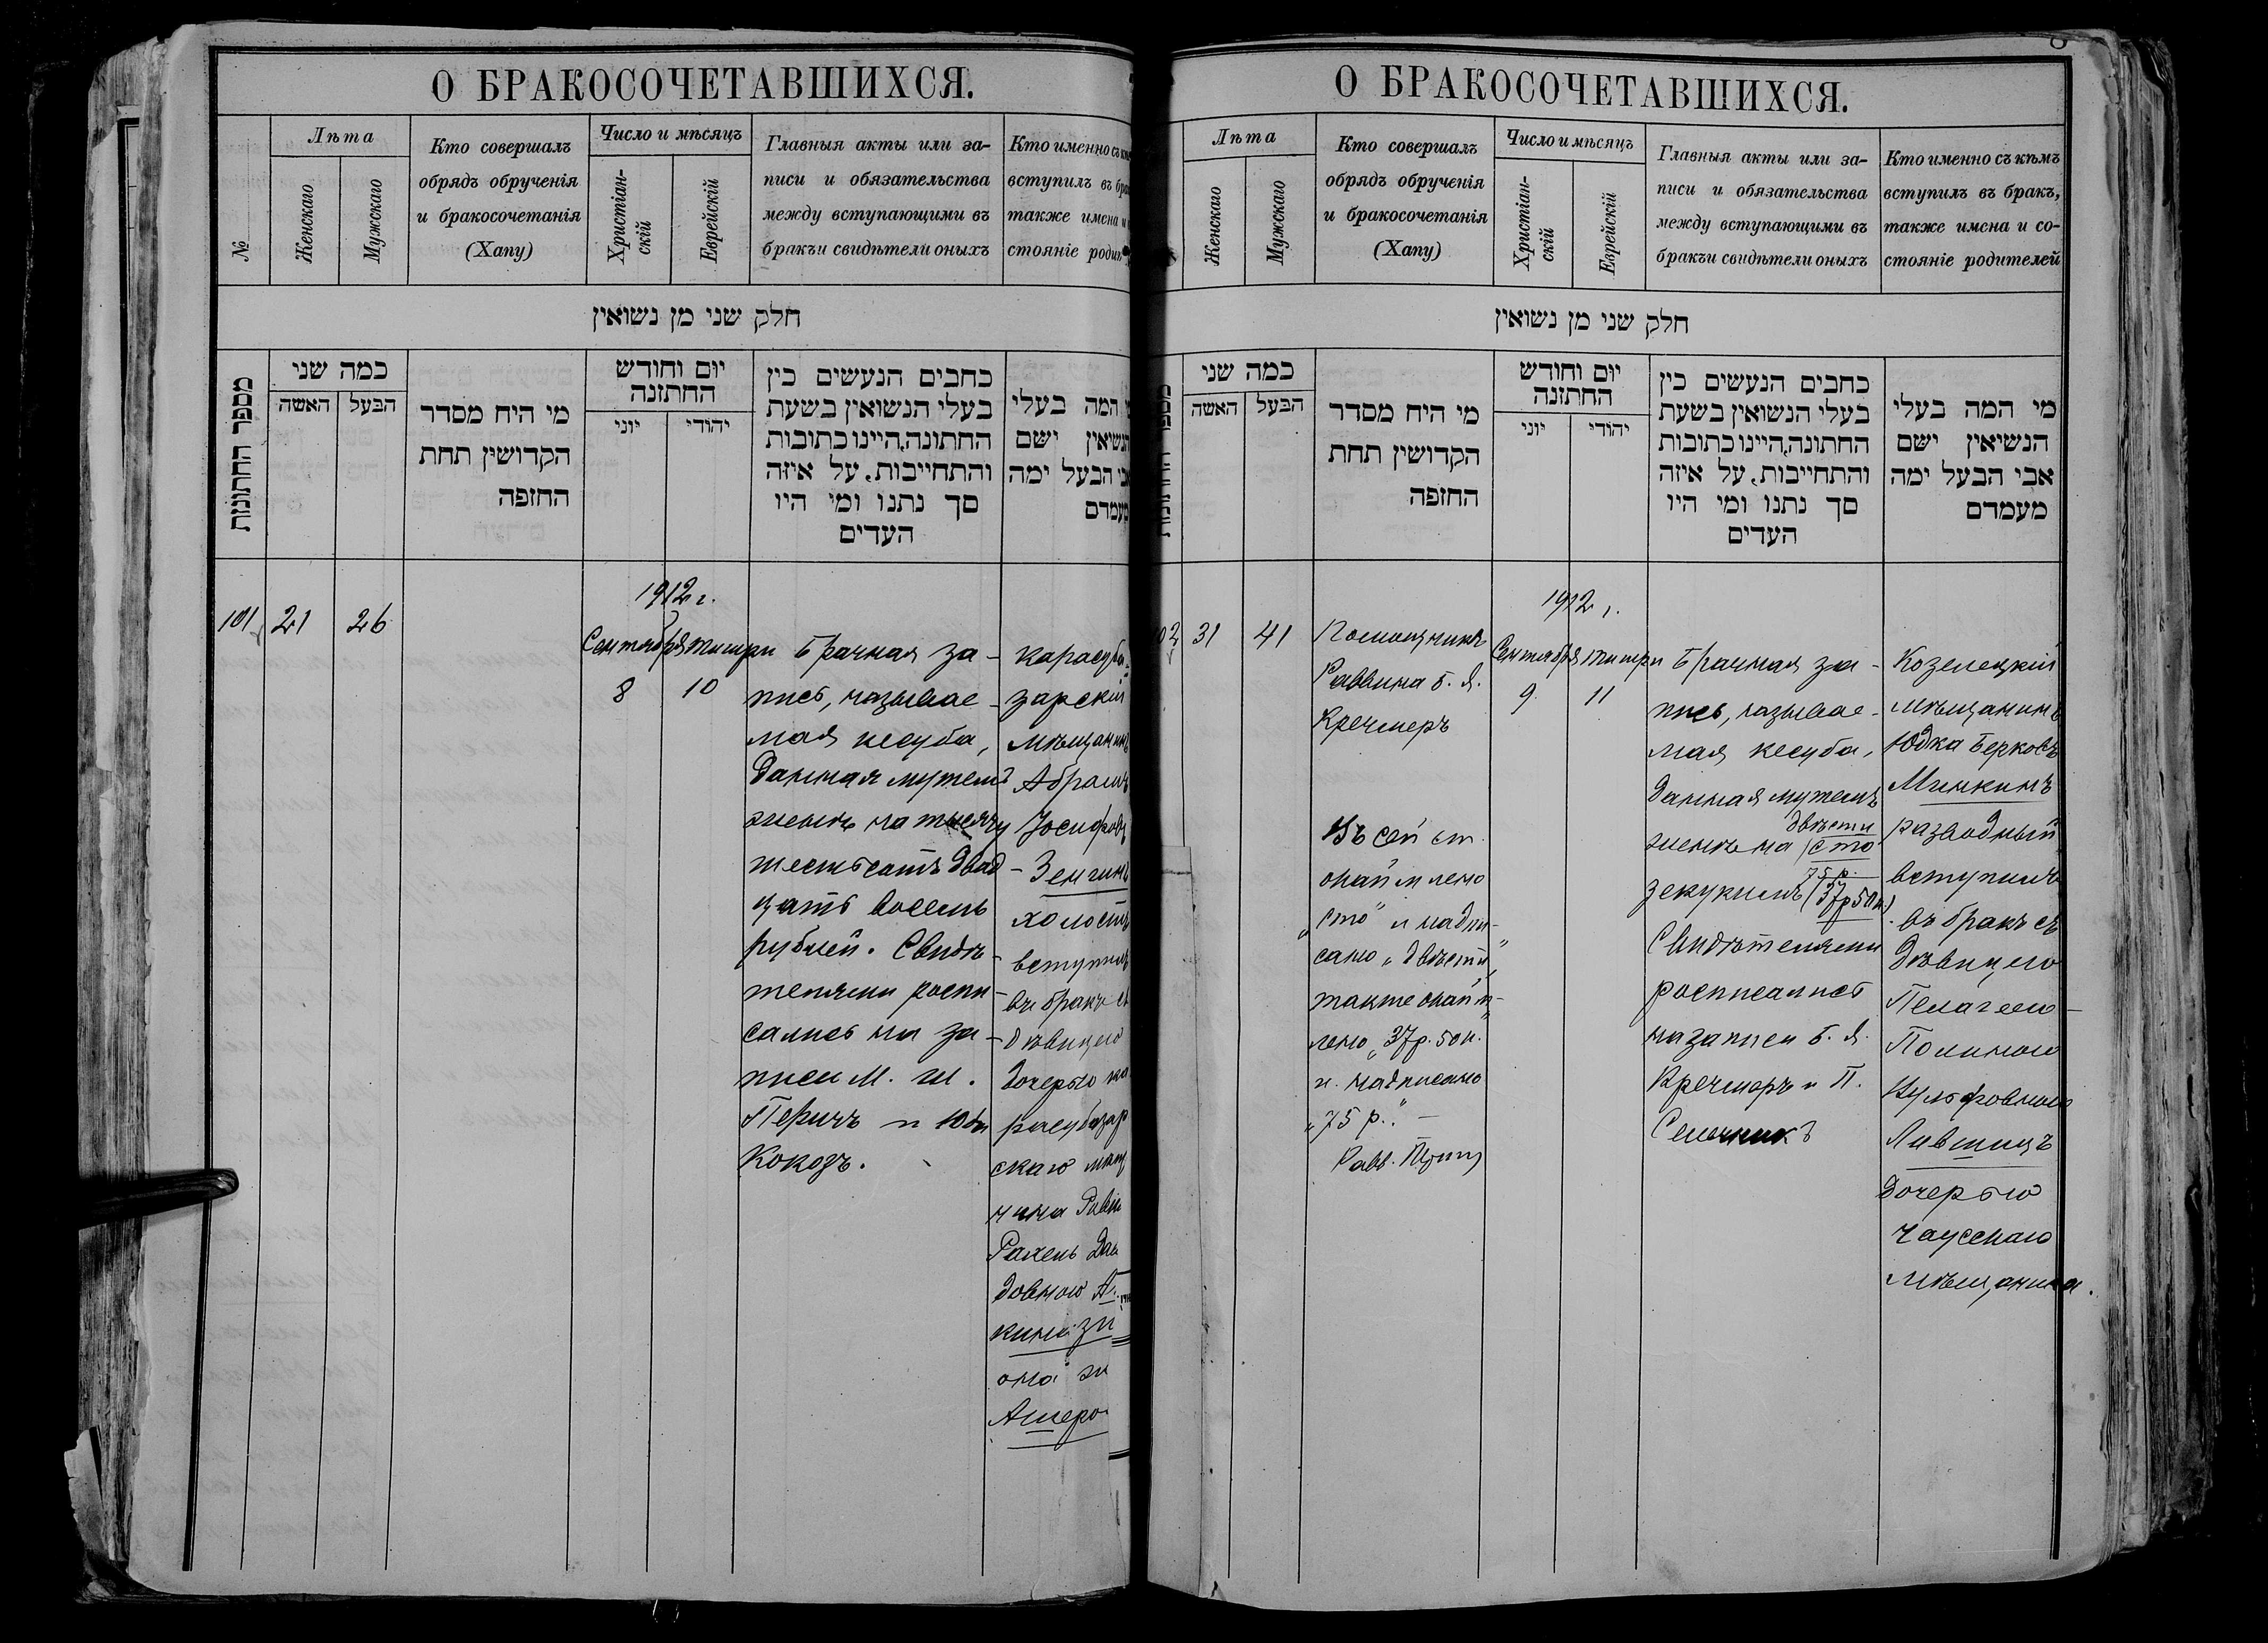 О БРАКОСОЧЕТАВШИХСЯ.
№
Лѣта
Женскаго
Мужскаго
Кто совершалъ
обрядъ обрученія
и бракосочетанія
(Хапу)
Число и мѣсяцъ
Христіан-
скій
Еврейскій
Главныя акты или за-
писи и обязательства
между вступающими въ
бракъ и свидѣтели оныхъ
Кто именно съ
вступилъ въ
также имена и
стояніе
חלק שני מן נשואין
מספר החתונות
כמה שני
האשה
הבעל
מי היח מסדר
הקדושין תחת
החזפה
יום וחודש
החתזנה
יוני
יהודי
כחבים הנעשים כין
בעלי הנשואין בשעת
החתונה,היינו כתובות
והתחייבות, על איזה
סך נתנו ומי היו
העדים
המה בעלי
ישם
הבעל ימה
1912 г.
101
21
26
Сентября
8
тишри
10
Брачная за-
пись, называе-
мая кесуба,
данная мужемъ
женѣ на тысячу
шестьсотъ двад
цать восемь
рублей. Свидѣ-
телями роспи-
сались на за-
писи М. Ш.
Перичъ и
Кокозъ.
карасуба-
зарскій
мѣщанинъ
Абрамъ
Іосифовъ
Зенгинъ
холостъ
вступилъ
въ бракъ съ
дѣвицею
дочерью ка
расубазар
скаго мѣщ
нина
Рахель Дав
довною
она
О БРАКОСОЧЕТАВШИХСЯ.
Лѣта
Женскаго
Мужскаго
Кто совершалъ
обрядъ обрученія
и бракосочетанія
(Хапу)
Число и мѣсяцъ
Христіан-
скій
Еврейскій
Главныя акты или за-
писи и обязательства
между вступающими въ
бракъ и свидѣтели оныхъ
Кто именно съ кѣмъ
вступилъ въ бракъ,
также имена и со-
стояніе родителей
חלק שני מן נשואין
כמה שני
האשה
הבעל
מי היח מסדר
הקדושין תחת
החזפה
יום וחודש
החתזנה
יוני
יהודי
כחבים הנעשים כין
בעלי הנשואין בשעת
החתונה,היינו כתובות
והתחייבות, על איזה
סך נתנו ומי היו
העדים
מי המה בעלי
הנשיאין ישם
אבי הבעל ימה
מעמדם
1912 г.
02
31
41
Помощникъ
Раввина Б. Я.
Кречмеръ
Въ сей ст.
окаймлено
„сто" и надпи-
сано „двѣсти",
также окайм-
лено „37р. 50к."
и надписано
„75 р." —
Равв.
Сентября
9
тишри
11
Брачная за-
пись, называе-
мая кесуба,
данная мужемъ
двѣсти
женѣ на (сто
75 р.
зекукимъ (37р 50к.)
Свидѣтелями
росписались
на записи Б. Я.
Кречмеръ и П.
Козелецкій
мѣщанинъ
Юдка Берковъ
Минкинъ
разводный
вступилъ
въ бракъ съ
дѣвицею
Пелагеею-
Полиною
Вульфовною
Лившицъ
дочерью
чаусскаго
мѣщанина.